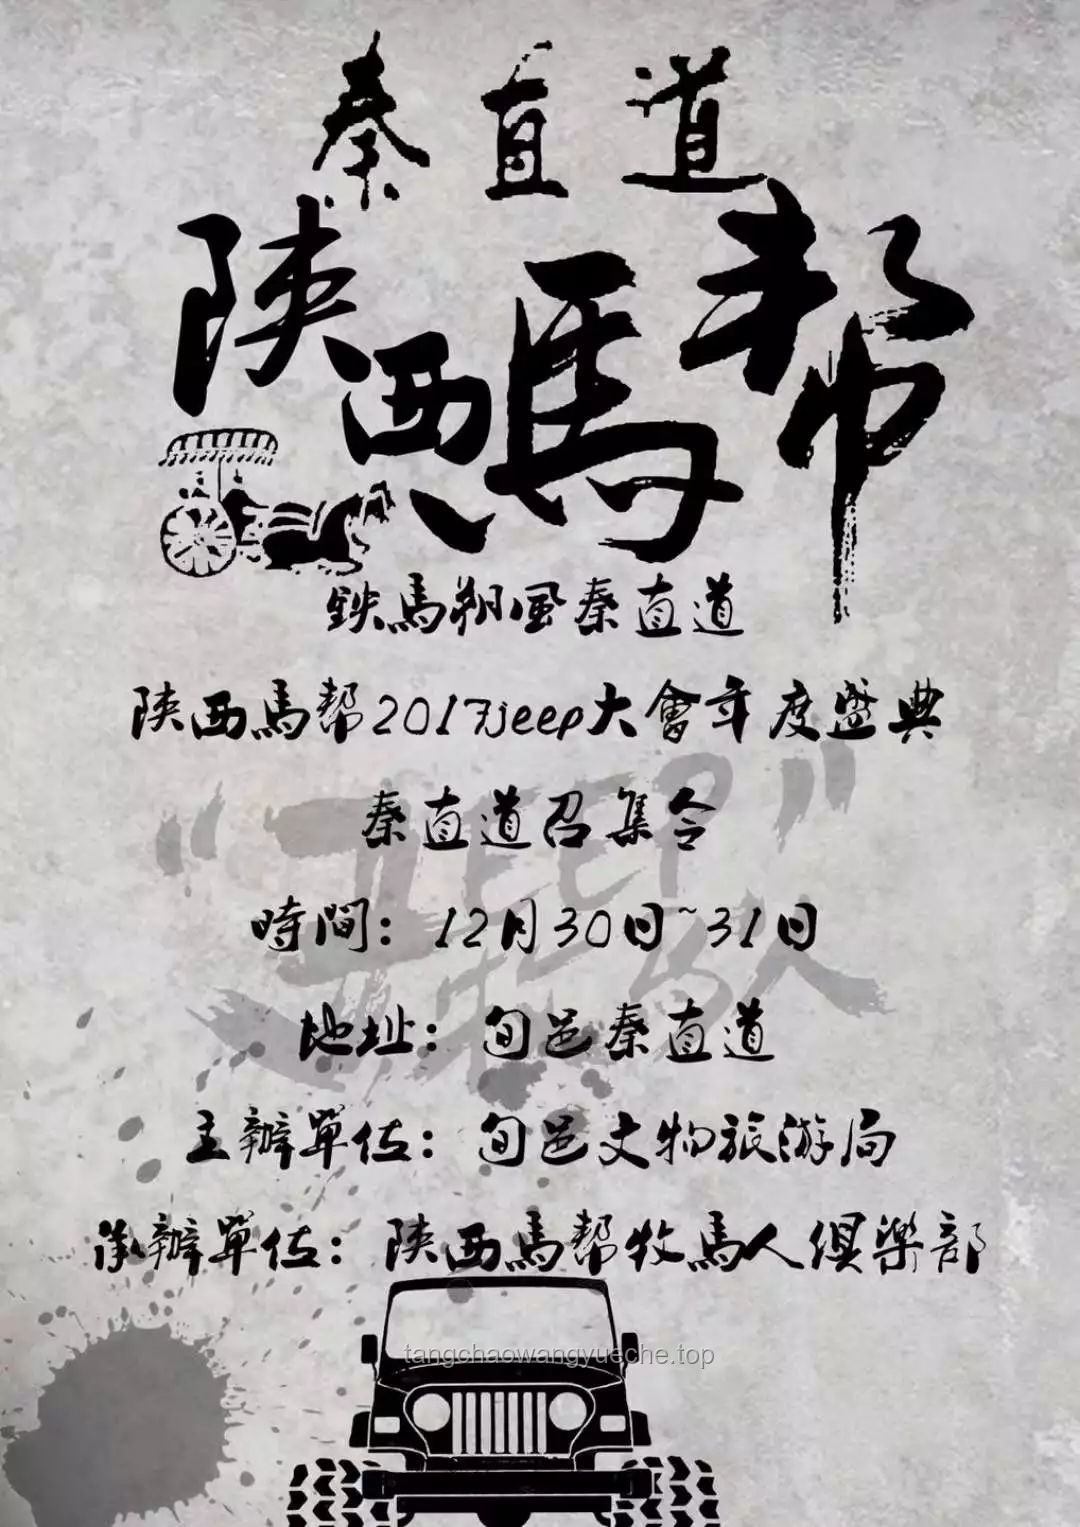 秦直道
陕西馬帮
鉄馬朔風秦直道
陕西馬帮2017jeep大會年度盛典
"JEEP"
秦直道召集令
時間：12月30日~31日
牧馬人
地址：旬邑秦直道
主辦單位：旬邑文物旅游局
承辦單位：陕西馬帮牧馬人俱樂部
tangchaowangyueche.top